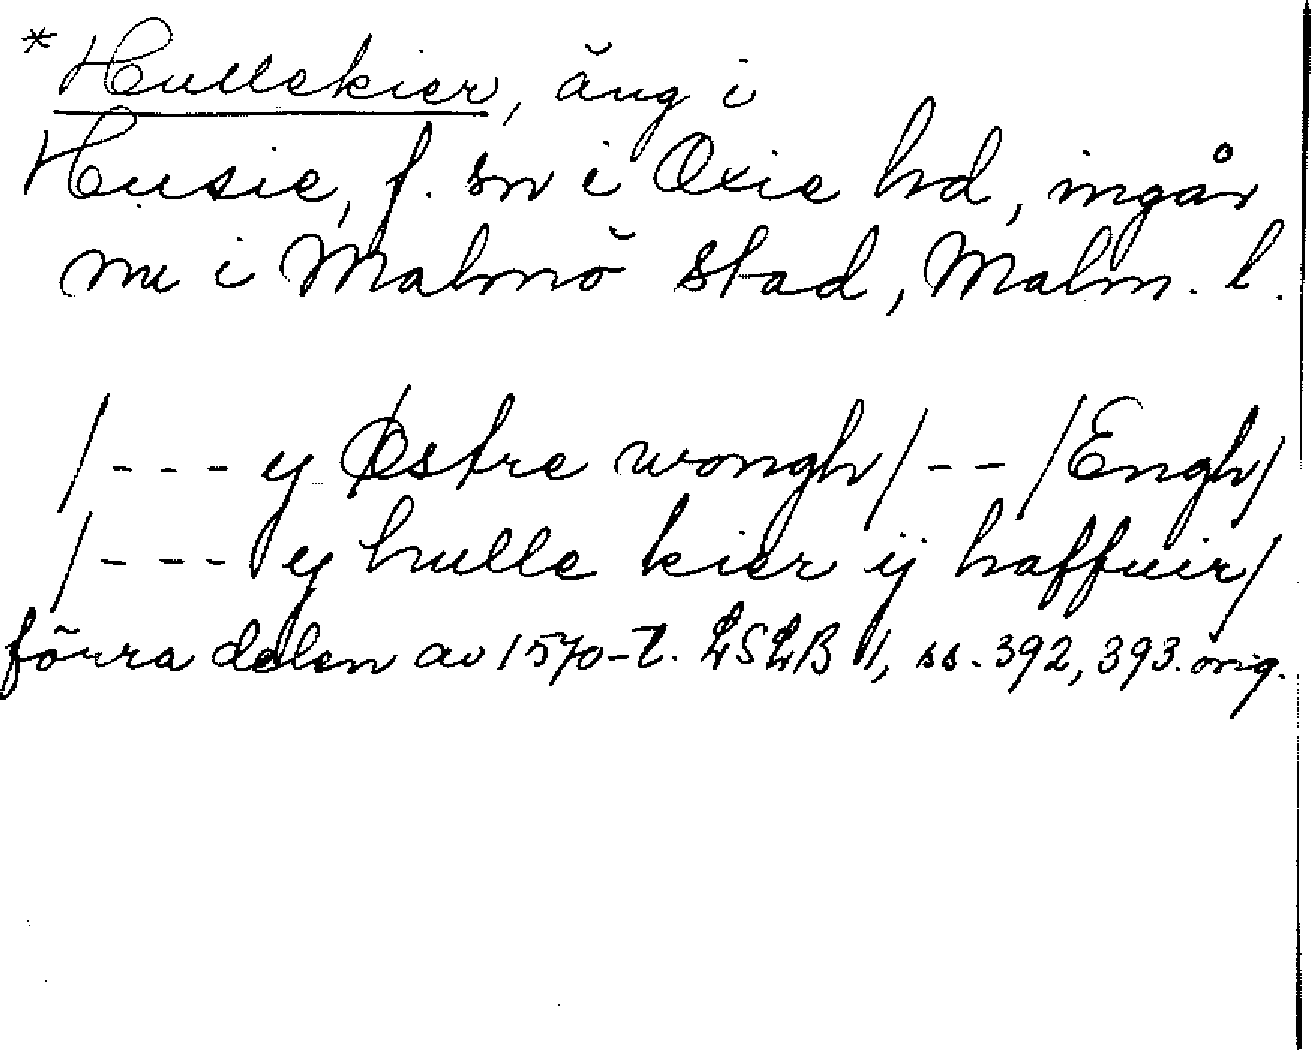 *Hullekier, äng i
Husie, f. sn i Oxie hd, ingår
nu i Malmö stad, Malm. l.
/--- y Østre wongh/ -- /Engh/
/--- y hulle kier ij haffuir/
förra delen av 1570-t. LSLB 1, ss. 392, 393. orig.